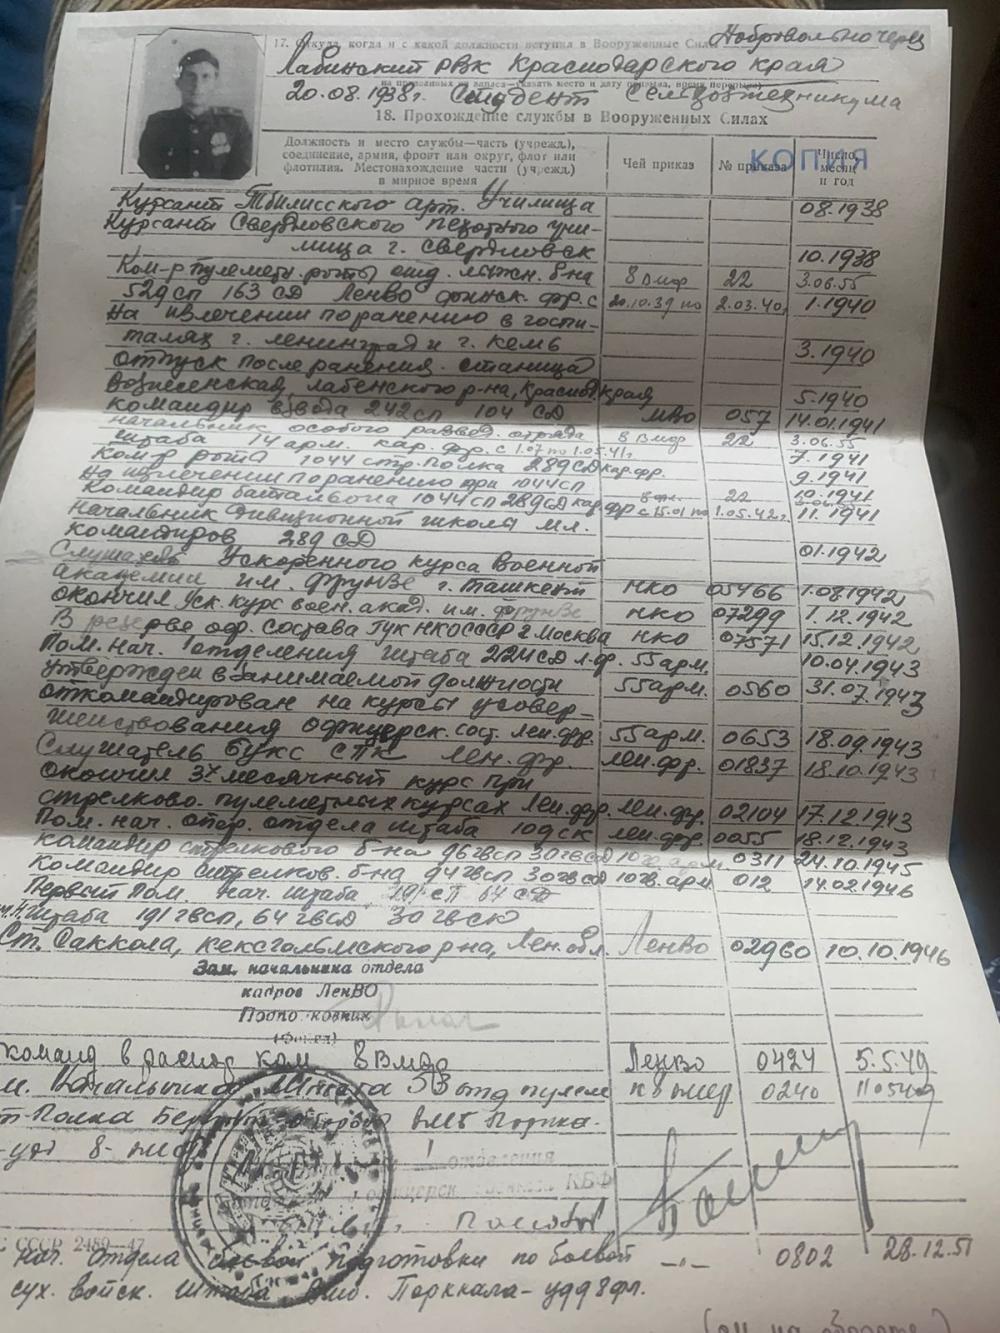 17. Откуда, когда и с какой должности вступил в Вооруженные Силы Добровольно через
Лабинский РВК Краснодарского края
20.08.1938г. Студент Сельхозтехникума
18. Прохождение службы в Вооруженных Силах
КОПИЯ
Должность и место службы—часть (учрежд.), соединение, армия, фронт или округ, флот или флотилия. Местонахождение части (учрежд.) в мирное время
Чей приказ
№ приказа
Число, месяц и год
Курсант Тбилисского арт. Училища 08.1938
Курсант Свердловского пехотного учи-
лища г. Свердловск 10.1938
Ком-р пулеметн. роты отд. лыжн. б-на 8 Вмф 22 3.06.55
529 сп 163 СД ЛенВо финск. фр. с 20.10.39 по 2.03.40 1.1940
На излечении по ранению в госпи-
талях г. Ленинград и г. Кемь 3.1940
отпуск после ранения. станица
Вознесенская, Лабенского р-на, Краснод. края 5.1940
командир взвода 242 сп 104 СД МВО 057 14.01.1941
начальник особого развед. отряда 8 Вмф 22 3.06.55
штаба 14 арм. кар. фр. с 1.07 по 1.05.41г. 7.1941
Ком-р роты 1044 стр. Полка 289 СД кар. фр. 9.1941
На излечении по ранению при 1044 сп 10.1941
Командир батальона 1044 сп 289 СД кар. 22
Начальник дивизионной школы мл. фр с 15.01 по 1.05.42г. 11.1941
командиров 289 СД 01.1942
Слушатель Ускоренного курса Военной
академии им. Фрунзе г. Ташкент НКО 05466 1.08.1942
окончил уск. курс воен. акад. им. Фрунзе НКО 07299 1.12.1942
В резерве оф. состава ГУК НКО СССР г. Москва НКО 07571 15.12.1942
Пом. нач. 1 отделения штаба 224 СД Л. фр. 55 арм. 10.04.1943
Утвержден в занимаемой должности 55 арм. 0560 31.07.1943
откомандирован на курсы усовер-
шенствования офицерск. сост. Лен. фр. 55 арм. 0653 18.09.1943
Слушатель БУКС СПК Лен. фр. Лен. фр. 01837 18.10.1943
окончил 3х месячный курс при
стрелково. пулеметных курсах Лен. фр. Лен. фр. 02104 17.12.1943
Пом. нач. опер. отдела штаба 109 СК Лен. фр. 0055 18.12.1943
командир стрелкового б-на 96 гвсп 30 гвСД 10 гв. арм 0311 24.10.1945
Командир стрелков. б-на 94 гвсп 30 гвСД 10 гв. арм. 012 14.02.1946
Первый Пом. нач. штаба 191 сп 64 СД
Штаба 191 гвсп, 64 гвСД 30 гвСК
Ст. Саккола, Кексгольмского р-на, Лен. обл. ЛенВО 02960 10.10.1946
Зам. начальника отдела
кадров ЛенВО
Подполковник
команд в распор. ком 8 Вмф ЛенВО 0424 5.5.49
Начальника Штаба 513 отд пулем 0240
Полка Берег. обороны ВМБ Поркка-
удд 8-
отделения
КБФ
СССР 2489—47
нач. отдела боевой подготовки по боевой —"— 0802 28.12.51
сух. войск. Штаба Вмб. Порккала-удд 8 фл.